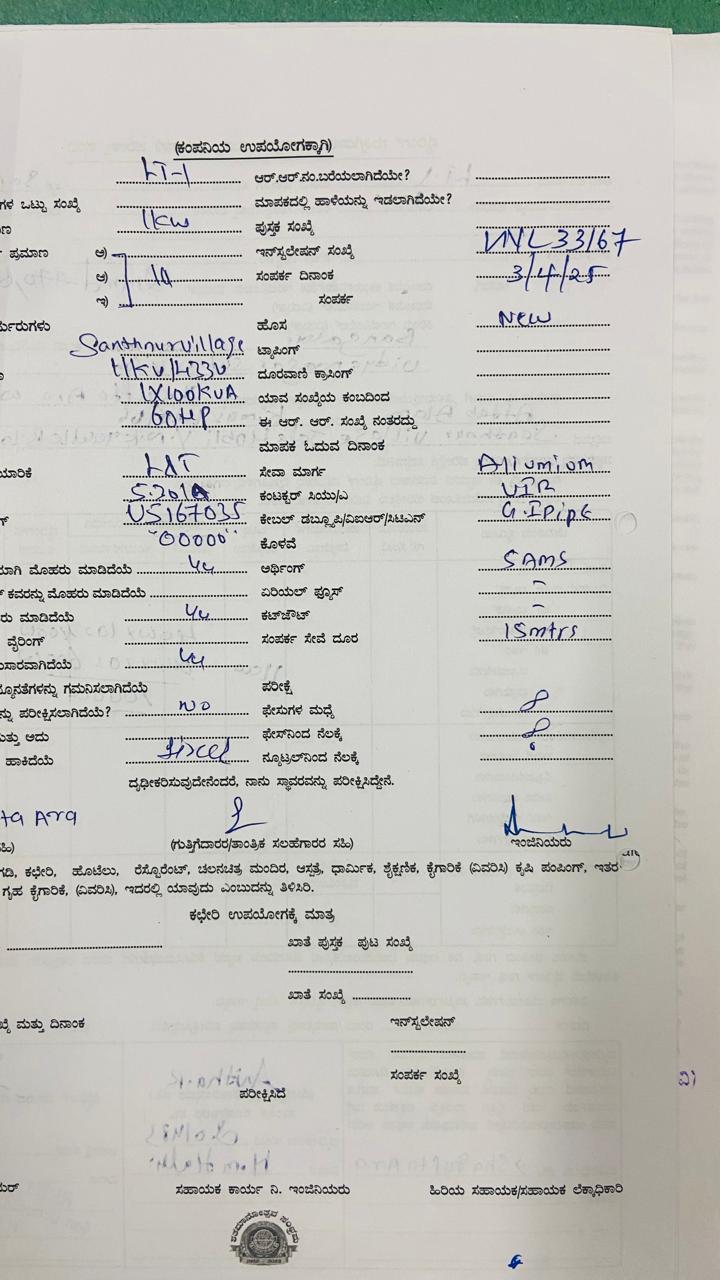 (ಕಂಪನಿಯ ಉಪಯೋಗಕ್ಕಾಗಿ)
LT-1 ಆರ್.ಆರ್.ನಂ.ಬರೆಯಲಾಗಿದೆಯೇ?
ಗಳ ಒಟ್ಟು ಸಂಖ್ಯೆ ಮಾಪಕದಲ್ಲಿ ಹಾಳೆಯನ್ನು ಇಡಲಾಗಿದೆಯೇ?
1kw ಪುಸ್ತಕ ಸಂಖ್ಯೆ
ಪ್ರಮಾಣ ಅ) ಇನ್‌ಸ್ಟಲೇಷನ್ ಸಂಖ್ಯೆ VNL33167
ಆ) ಸಂಪರ್ಕ ದಿನಾಂಕ 3/4/25
ಇ) ಸಂಪರ್ಕ
ಹೊಸ New
Santhnur village ಟ್ಯಾಪಿಂಗ್
11kv/433v ದೂರವಾಣಿ ಕ್ರಾಸಿಂಗ್
1X100KVA ಯಾವ ಸಂಖ್ಯೆಯ ಕಂಬದಿಂದ
60HP ಈ ಆರ್. ಆರ್. ಸಂಖ್ಯೆ ನಂತರದ್ದು
ಮಾಪಕ ಓದುವ ದಿನಾಂಕ
ಯಾರಿಕೆ L&T ಸೇವಾ ಮಾರ್ಗ Allumiom
5-20A ಕಂಟಕ್ಟರ್ ಸಿಯು/ಎ VIR
US167035 ಕೇಬಲ್ ಡಬ್ಲ್ಯೂಪಿ/ವಿಐಆರ್/ಸಿಟಿಎಸ್ G.I Pipe
"00000" ಕೊಳವೆ
ಯಾಗಿ ಮೊಹರು ಮಾಡಿದೆಯೆ ಅರ್ಥಿಂಗ್ 5AMS
ಕವರನ್ನು ಮೊಹರು ಮಾಡಿದೆಯೆ ಏರಿಯಲ್ ಫ್ಯೂಸ್ -
ರು ಮಾಡಿದೆಯೆ ಕಟ್‌ಔಟ್ -
ವೈರಿಂಗ್ ಸಂಪರ್ಕ ಸೇವೆ ದೂರ 15mtrs
ಸಾರವಾಗಿದೆಯೆ
ನ್ಯೂನತೆಗಳನ್ನು ಗಮನಿಸಲಾಗಿದೆಯೆ ಪರೀಕ್ಷೆ
ನ್ನು ಪರೀಕ್ಷಿಸಲಾಗಿದೆಯೆ? NO ಫೇಸುಗಳ ಮಧ್ಯೆ
ಮತ್ತು ಅದು ಫೇಸ್‌ನಿಂದ ನೆಲಕ್ಕೆ
ಹಾಕಿದೆಯೆ fixed ನ್ಯೂಟ್ರಲ್‌ನಿಂದ ನೆಲಕ್ಕೆ
ದೃಢೀಕರಿಸುವುದೇನೆಂದರೆ, ನಾನು ಸ್ಥಾವರವನ್ನು ಪರೀಕ್ಷಿಸಿದ್ದೇನೆ.
ta Ara
(ಗುತ್ತಿಗೆದಾರರ/ತಾಂತ್ರಿಕ ಸಲಹೆಗಾರರ ಸಹಿ) ಇಂಜಿನಿಯರು
ಗಡಿ, ಕಛೇರಿ, ಹೊಟೇಲು, ರೆಸ್ಟೊರೆಂಟ್, ಚಲನಚಿತ್ರ ಮಂದಿರ, ಆಸ್ಪತ್ರೆ, ಧಾರ್ಮಿಕ, ಶೈಕ್ಷಣಿಕ, ಕೈಗಾರಿಕೆ (ವಿವರಿಸಿ) ಕೃಷಿ ಪಂಪಿಂಗ್, ಇತರ
ಗೃಹ ಕೈಗಾರಿಕೆ, (ವಿವರಿಸಿ), ಇದರಲ್ಲಿ ಯಾವುದು ಎಂಬುದನ್ನು ತಿಳಿಸಿರಿ.
ಕಛೇರಿ ಉಪಯೋಗಕ್ಕೆ ಮಾತ್ರ
ಖಾತೆ ಪುಸ್ತಕ ಪುಟ ಸಂಖ್ಯೆ
ಖಾತೆ ಸಂಖ್ಯೆ
ಮತ್ತು ದಿನಾಂಕ ಇನ್‌ಸ್ಟಲೇಷನ್
ಸಂಪರ್ಕ ಸಂಖ್ಯೆ
ಪರೀಕ್ಷಿಸಿದೆ
ಸಹಾಯಕ ಕಾರ್ಯ ನಿ. ಇಂಜಿನಿಯರು ಹಿರಿಯ ಸಹಾಯಕ/ಸಹಾಯಕ ಲೆಕ್ಕಾಧಿಕಾರಿ